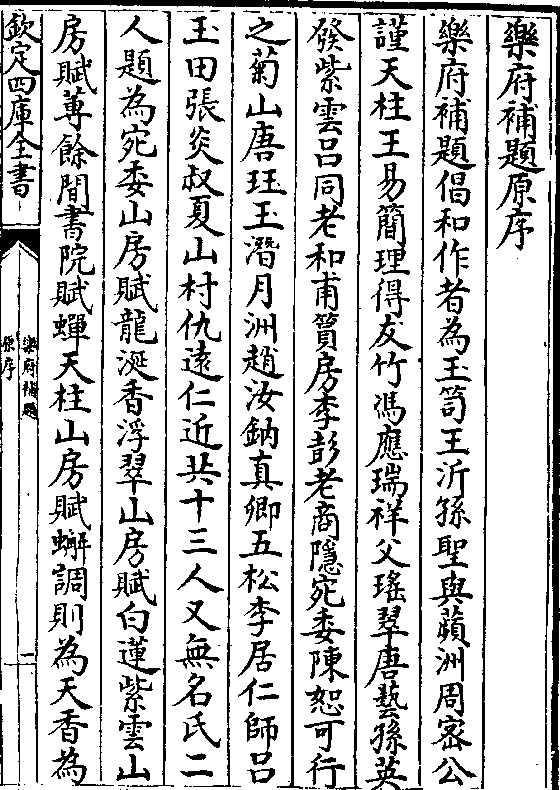 樂府補題原序
樂府補題倡和作者為玉笥王沂孫聖與蘋洲周宻公
謹天柱王易簡理得友竹馮應瑞祥父瑤翠唐藝孫英
發紫雲吕同老和甫篔房李彭老商隱宛委陳恕可行
之菊山唐珏玉潛月洲趙汝鈉真卿五松李居仁師吕
玉田張炎叔夏山村仇逺仁近共十三人又無名氏二
人題為宛委山房賦龍涎香浮翠山房賦白蓮紫雲山
房賦蓴餘閒書院賦蟬天柱山房賦蠏調則為天香為
欽定四庫全書
樂府補題
原序
一